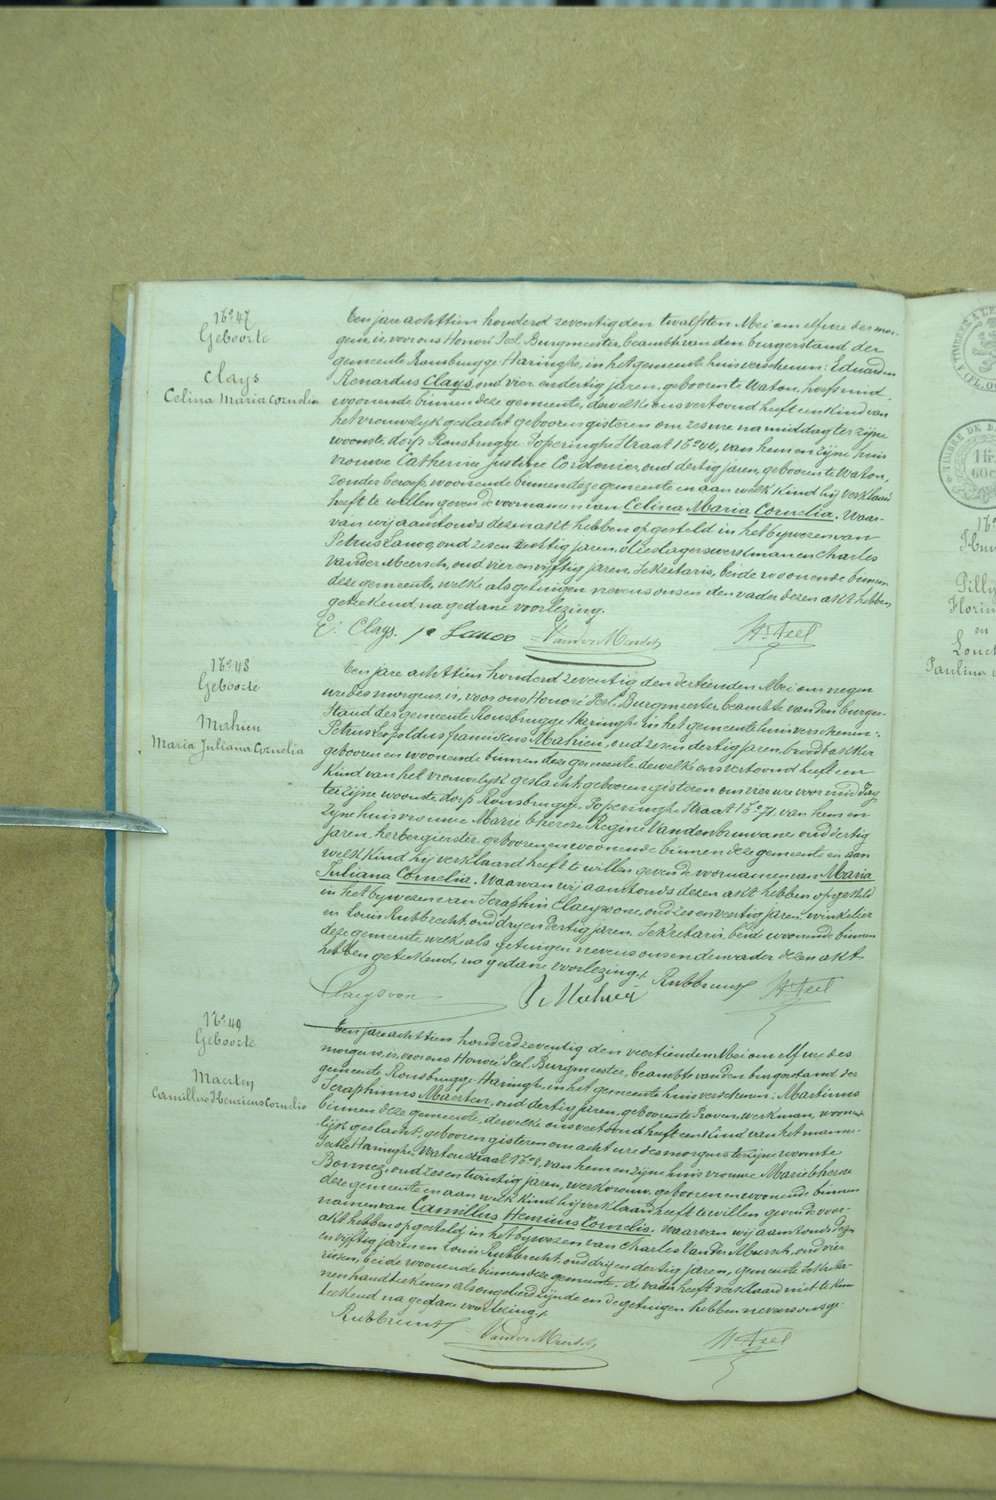 No 47
Geboorte
Clays
Celina Maria Cornelia
Een jare achttien honderd zeventig den twalfsten Mei om elf ure des mor-
gens, is, voor ons Honoré Feel, Burgmeester, beambte van den burgerstand der
gemeente Rousbrugge Haringhe, in het gemeente huis verschenen: Eduardus
Renardus Clays, oud vier en dertig jaren, geboren te Waton, hoefsmid
woonende binnen deze gemeente, dewelke ons vertoond heeft een kind van
het vrouwelijk geslacht geboren gisteren om zes ure na middag ter zijne
woonste, dorp Rousbrugge Poperinghe Straat No 44, van hem en zijne huis
vrouwe Catherine Justine Cordonier, oud dertig jaren, geboren te Waton,
zonder beroep, woonende binnen deze gemeente en aan welk kind hij verklaard
heeft te willen geven de voornamen van Celina Maria Cornelia. Waar-
van wij aanstonds dezen akt hebben opgesteld in het bijwezen van
Petrus Lanoo, oud zes en zestig jaren, olieslagers werkman en Charles
Van der Meersch, oud vier en vijftig jaren, Sekretaris, beide woonende binnen
deze gemeente, welke als getuigen nevens ons en den vader dezen akt hebben
geteekend, na gedane voorlezing.
E. Clays. pe Lanoo Vander Meersch Hré Feel
No 48
Geboorte
Mahieu
Maria Juliana Cornelia
Een jare achttien honderd zeventig den dertienden Mei om negen
ure des morgens, is, voor ons Honoré Feel, Burgmeester, beambte van den burger-
stand der gemeente Rousbrugge Haringhe in het gemeente huis verschenen:
Petrus Leopoldus franciscus Mahieu, oud zes en dertig jaren, broodbakker
geboren en woonende binnen deze gemeente, dewelke ons vertoond heeft een
kind van het vrouwelijk geslacht geboren gisteren om vier ure voormiddag
ter zijne woonste dorp Rousbrugge, Poperinghe Straat No 71, van hem en
zijne huisvrouwe Marie therese Regine Vandenbruwane oud dertig
jaren, herbergierster, geboren en woonende binnen deze gemeente en aan
welk kind hij verklaard heeft te willen geven de voornamen van Maria
Juliana Cornelia. Waarvan wij aanstonds dezen akt hebben opgesteld
in het bijwezen van Seraphin Claeysoone, oud zes en veertig jaren, winkelier
en Louis Rubbrecht, oud dry en dertig jaren, Sekretaris, beide woonende binnen
deze gemeente, welk als getuigen nevens ons en den vader dezen akt
hebben geteekend, na gedane voorlezing.
Claeysoon P. Mahieu Rubbrecht Hré Feel
No 49
Geboorte
Maerten
Camillus Henricus Cornelis
Een jare achttien honderd zeventig den veertienden Mei om elf ure des
morgens, is, voor ons Honoré Feel, Burgmeester, beambte van den burgerstand der
gemeente Rousbrugge Haringhe, in het gemeente huis verschenen: Martinus
Seraphinus Maerten, oud dertig jaren, geboren te Proven, werkman, woonen-
binnen deze gemeente, dewelke ons vertoond heeft een kind van het manne-
lijk geslacht, geboren gisteren om acht ure des morgens ter zijne woonste
Sectie Haringhe Waton straat No 1, van hem en zijne huisvrouwe Marie therese
Bonnez, oud zes en twintig jaren, werkvrouw, geboren en woonende binnen
deze gemeente en aan welk kind hij verklaard heeft te willen geven de voor-
namen van Camillus Henricus Cornelis. Waarvan wij aanstonds dezen
akt hebben opgesteld, in het bijwezen van Charles Van der Meersch, oud vier
en vijftig jaren en Louis Rubbrecht, oud dry en dertig jaren, gemeente Sekreta-
rissen, beide woonende binnen deze gemeente. de vader heeft verklaard niet te kun-
nen handteekenen als ongeleerd zijnde en de getuigen hebben nevens ons ge-
teekend na gedane voorlezing.
Rubbrecht Vander Meersch Hré Feel
Pilly
Florin
en
Paulina